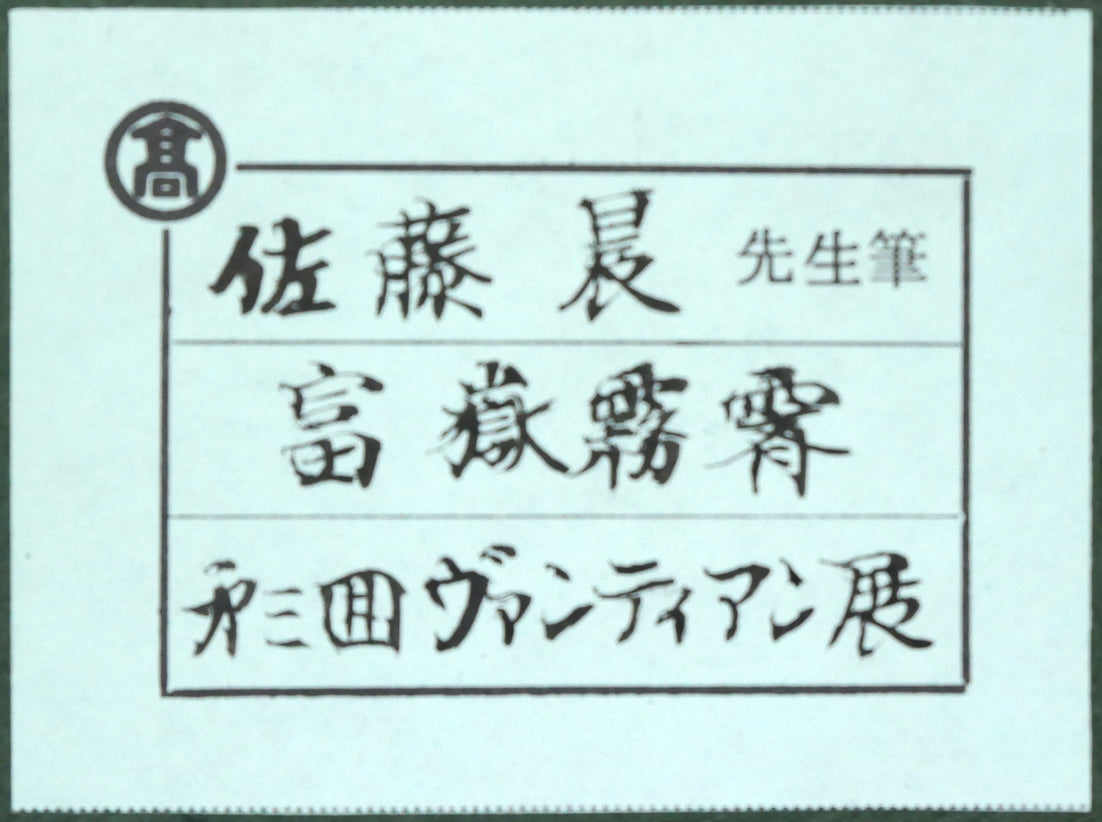 髙
佐藤 晨 先生筆
富嶽霧霄
第三回ヴァンティアン展